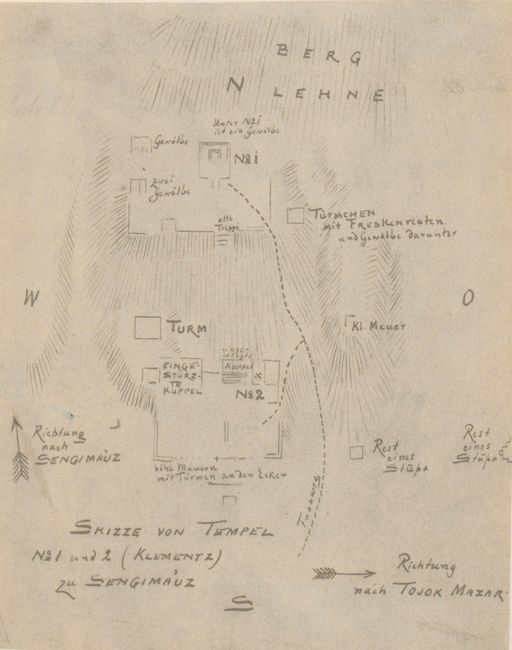 BERG
N LEHNE
Unter №1
ist ein Gewölbe
Gewölbe
№1
zwei
Gewölbe
alte
Treppe
TÜRMCHEN
mit FRESKENRESTEN
und Gewölbe darunter
W
O
TURM
Kl. Mauer
EINGE-
STÜRZ-
TE
KUPPEL
KUPPEL
x
№2
Richtung
nach
SENGIMA'UZ
Rest
eines
Stūpa
Rest
eines
Stūpa
hohe Mauern
mit Türmen an den Ecken
Fussweg
SKIZZE VON TEMPEL
№1 und 2 (KLEMENTZ)
zu SENGIMA'UZ
Richtung
nach TOJOK MAZAR.
S